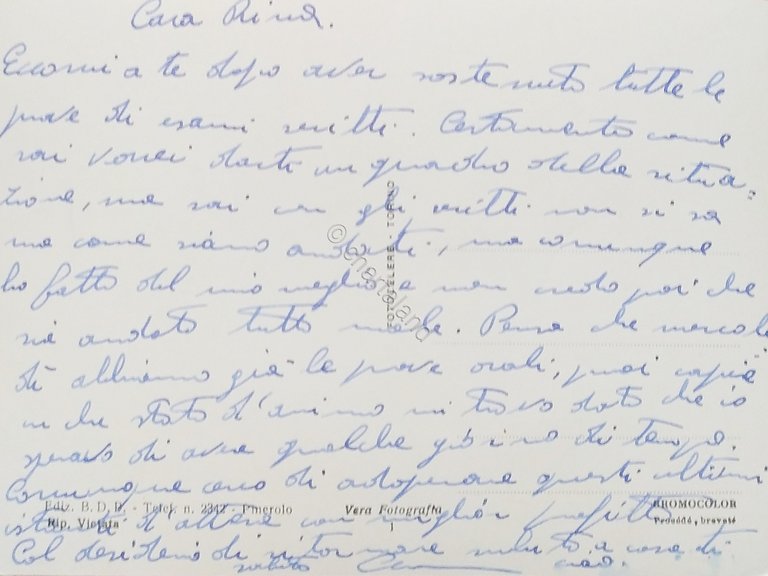 Cara Rina.
Eccomi a te dopo aver sostenuto tutte le
prove di esami scritti. Certamente come
sai vorrei darti un quadro della situa=
zione, ma sai con gli scritti non si sa
mai come siano andati, ma comunque
ho fatto del mio meglio e non credo poi che
sia andato tutto male. Pensa che mercole
dì abbiamo già le prove orali, puoi capire
in che stato d'animo mi trovo dato che io
speravo di avere qualche giorno di tempo.
Comunque cerco di adoperare questi ultimi
istanti di attesa con miglior profitto
Col desiderio di ritornare subito a casa ti
saluto ciao.
FOTOCELERE - TORINO
© cheneland
Ediz. B. D. B. - Telef. n. 2342 - Pinerolo
Rip. Vietata
Vera Fotografia
1
BROMOCOLOR
Procédé, breveté